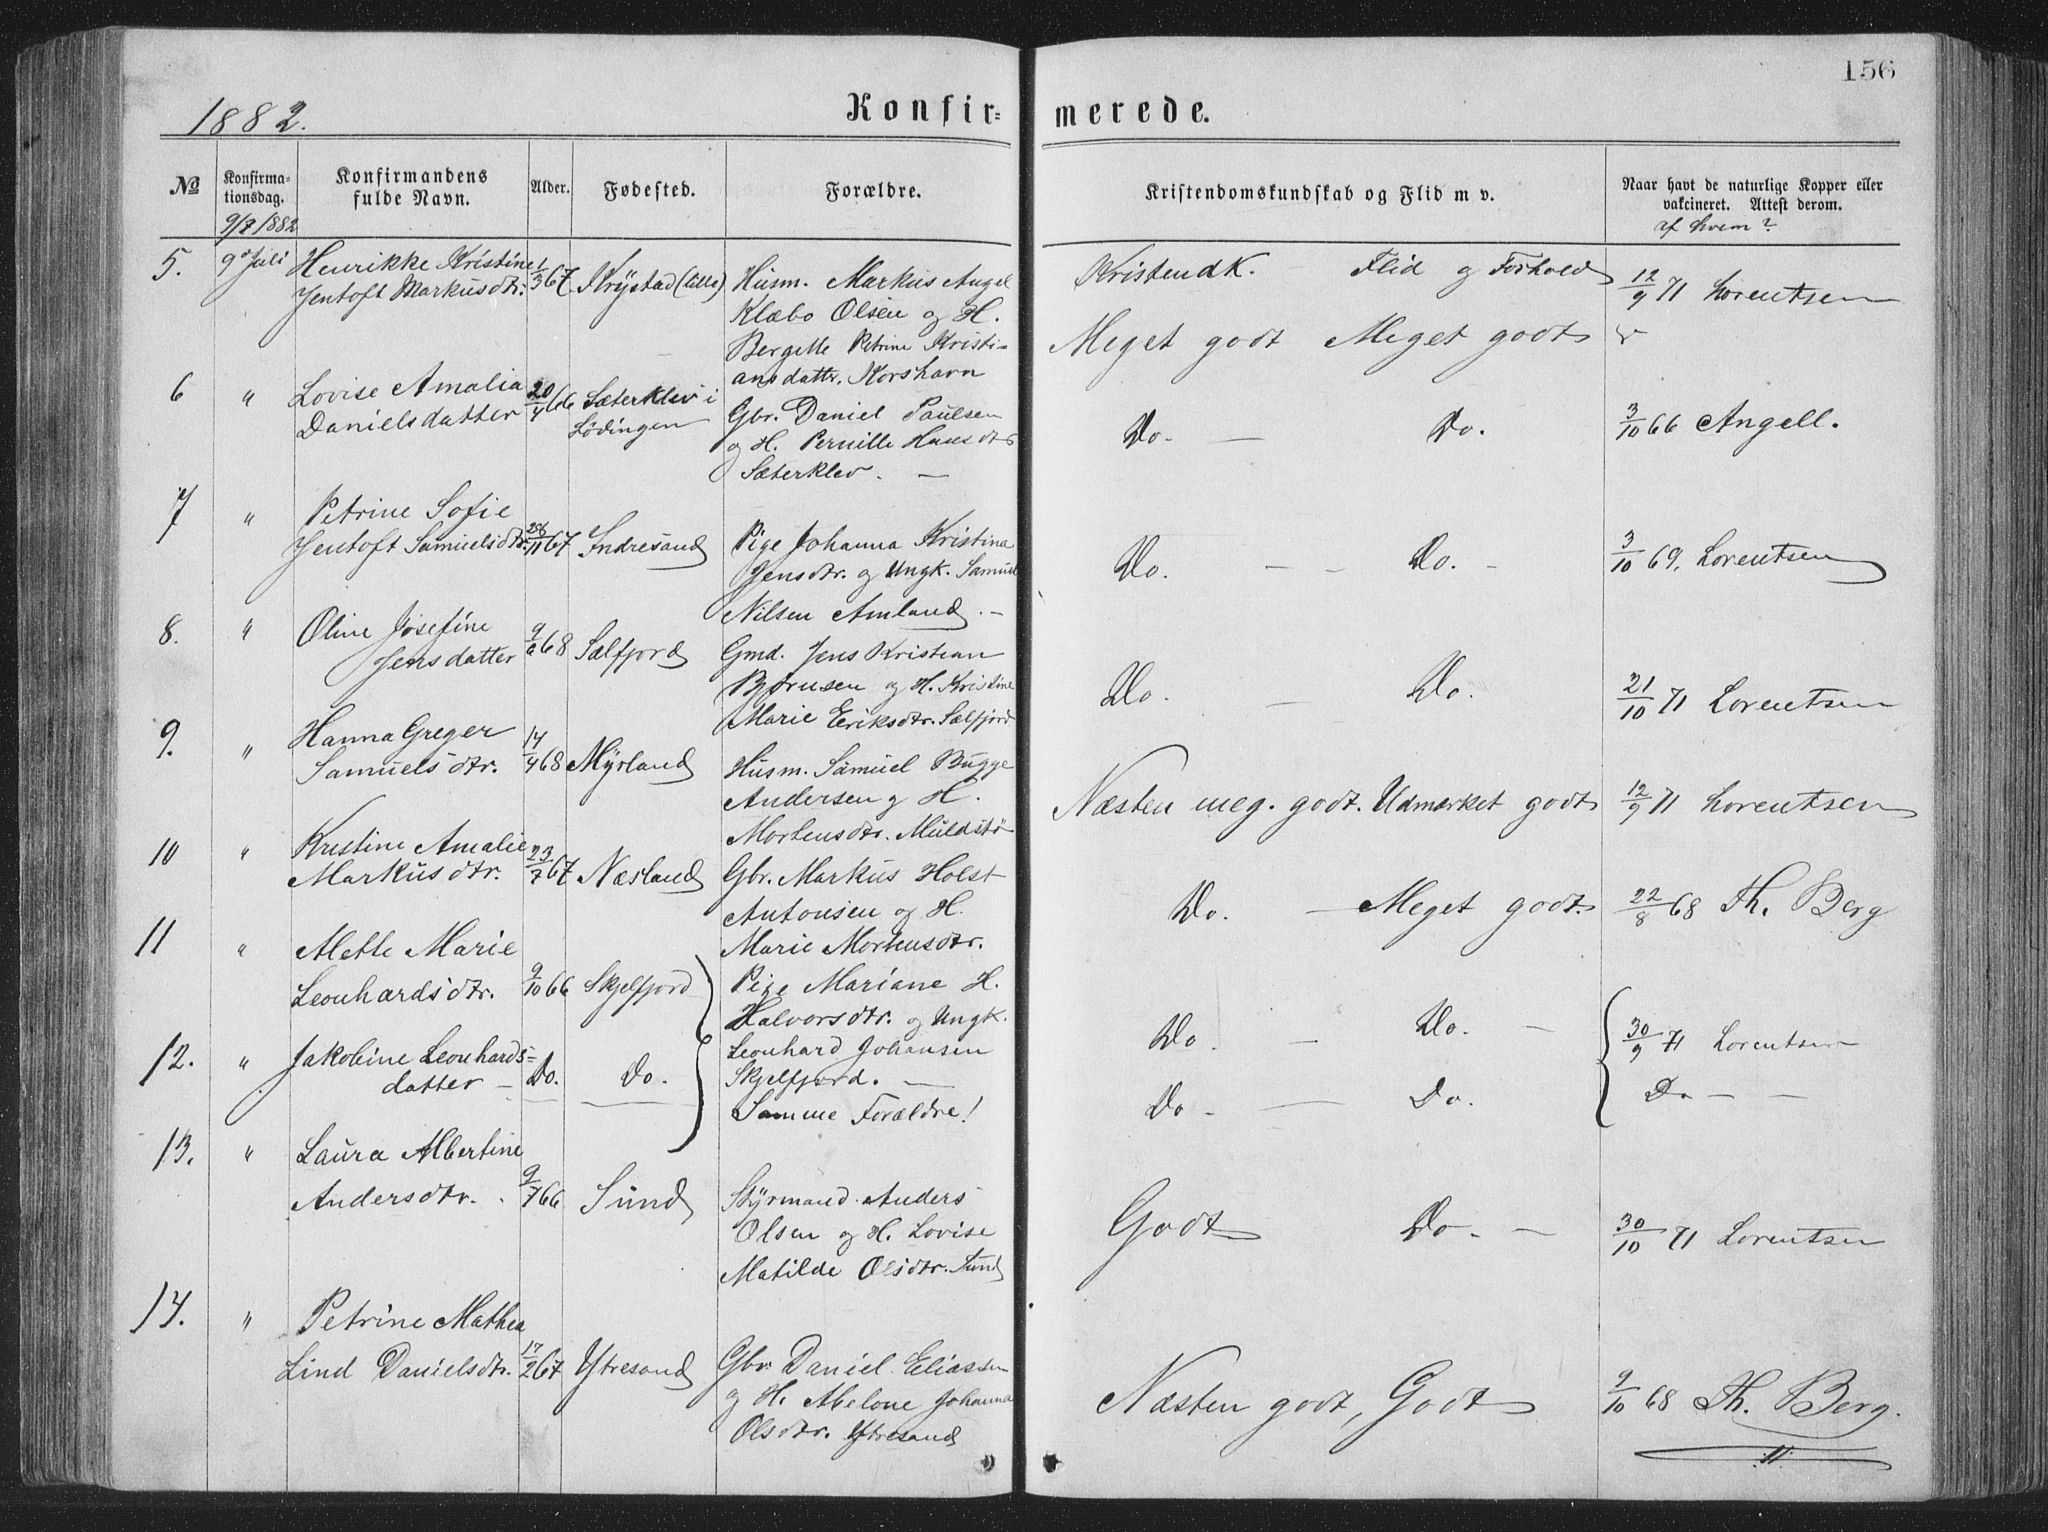 156
1882.
Konfir=
merede.
No
Konfirma-
tionsdag.
9/7 1882
Konfirmandens
fulde Navn.
Alder.
Fødested.
Forældre.
Kristendomskundskab og Flid m v.
Naar havt de naturlige Kopper eller
vakcineret. Attest derom.
af hvem?
5. 9de Juli Henrikke Kristine 1/3 67 Krystad (lille) Husm. Markus Angel
Jentoft Markusdtr.
Klæbo Olsen og H.
Bergette Petrine Kristi-
ansdatter. Korshavn
Kristendk. - Flid og Forhold
Meget godt Meget godt
12/9 71 Lorentsen
6 " Lovise Amalia 20/4 66 Sæterklev i
Danielsdatter Lødingen
Gbr. Daniel Paulsen
og H. Pernille Hansdtr
Sæterklev. —
Do. — Do.
3/10 66 Angell.
7 " Petrine Sofie
Jentoft Samuelsdtr. 28/11 67 Indresand Pige Johanna Kristina
Jensdtr. og Ungk. Samuel
Nilsen Amland. -
Do. - - Do. -
3/10 69. Lorentsen
8. " Oline Josefine 9/6 68 Sælfjord
Jensdatter
Gmd. Jens Kristian
Bjørnsen og H. Kristine
Marie Eriksdtr. Sælfjord
Do. - Do.
21/10 71 Lorentsen
9. " Hanna Greger
Samuelsdtr. 14/4 68 Myrland Husm. Samuel Bugge
Andersen og H.
Mortensdtr. Muldstø
Næsten meg. godt. Udmærket godt 12/9 71 Lorentsen
10 " Kristine Amalie
Markusdtr. 23/7 67 Næsland Gbr. Markus Holst
Antonsen og H.
Marie Mortensdtr.
Do. - Meget godt. 22/8 68 Th. Berg
11 " Alette Marie
Leonhardsdtr. 9/10 66 Skjelfjord Pige Mariane H.
Halvorsdtr. og Ungk.
Leonhard Johansen
Skjelfjord. —
Do. — Do. - 30/9 71 Lorentsen
12. " Jakobine Leonhards=
datter - Do. Do. Samme Forældre!
Do - — Do. Do - -
13. " Laura Albertine
Andersdtr. . 9/7 66 Sund Styrmand Anders
Olsen og H. Lovise
Matilde Olsdtr. Sund
Godt Do - - 30/10 71 Lorentsen
14. " Petrine Mathea
Lind Danielsdtr. 17/2 67 Ytresand Gbr. Daniel Eliassen
og H. Abelone Johanna
Olsdtr. Ytresand
Næsten godt, Godt 9/10 68 Th. Berg.